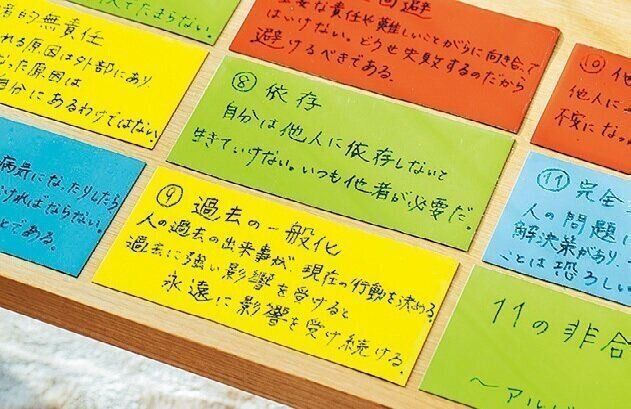 てたまらない。
的無責任
れる原因は外部にあり
った原因は
自分にあるわけではない。
回避
重要な責任や難しいことがらに向き合って
はいけない。どうせ失敗するのだから
避けるべきである。
⑩ 他
他人に
不安にな
⑧ 依存
自分は他人に依存しないと
生きていけない。いつも他者が必要だ。
病気になったりしたら
ければならない。
とである。
⑨ 過去の一般化
人の過去の出来事が、現在の行動を決める。
過去に強い影響を受けると
永遠に影響を受け続ける。
⑪ 完全
人の問題に
解決策があり
ことは恐ろしい
11の非合
〜アルバ